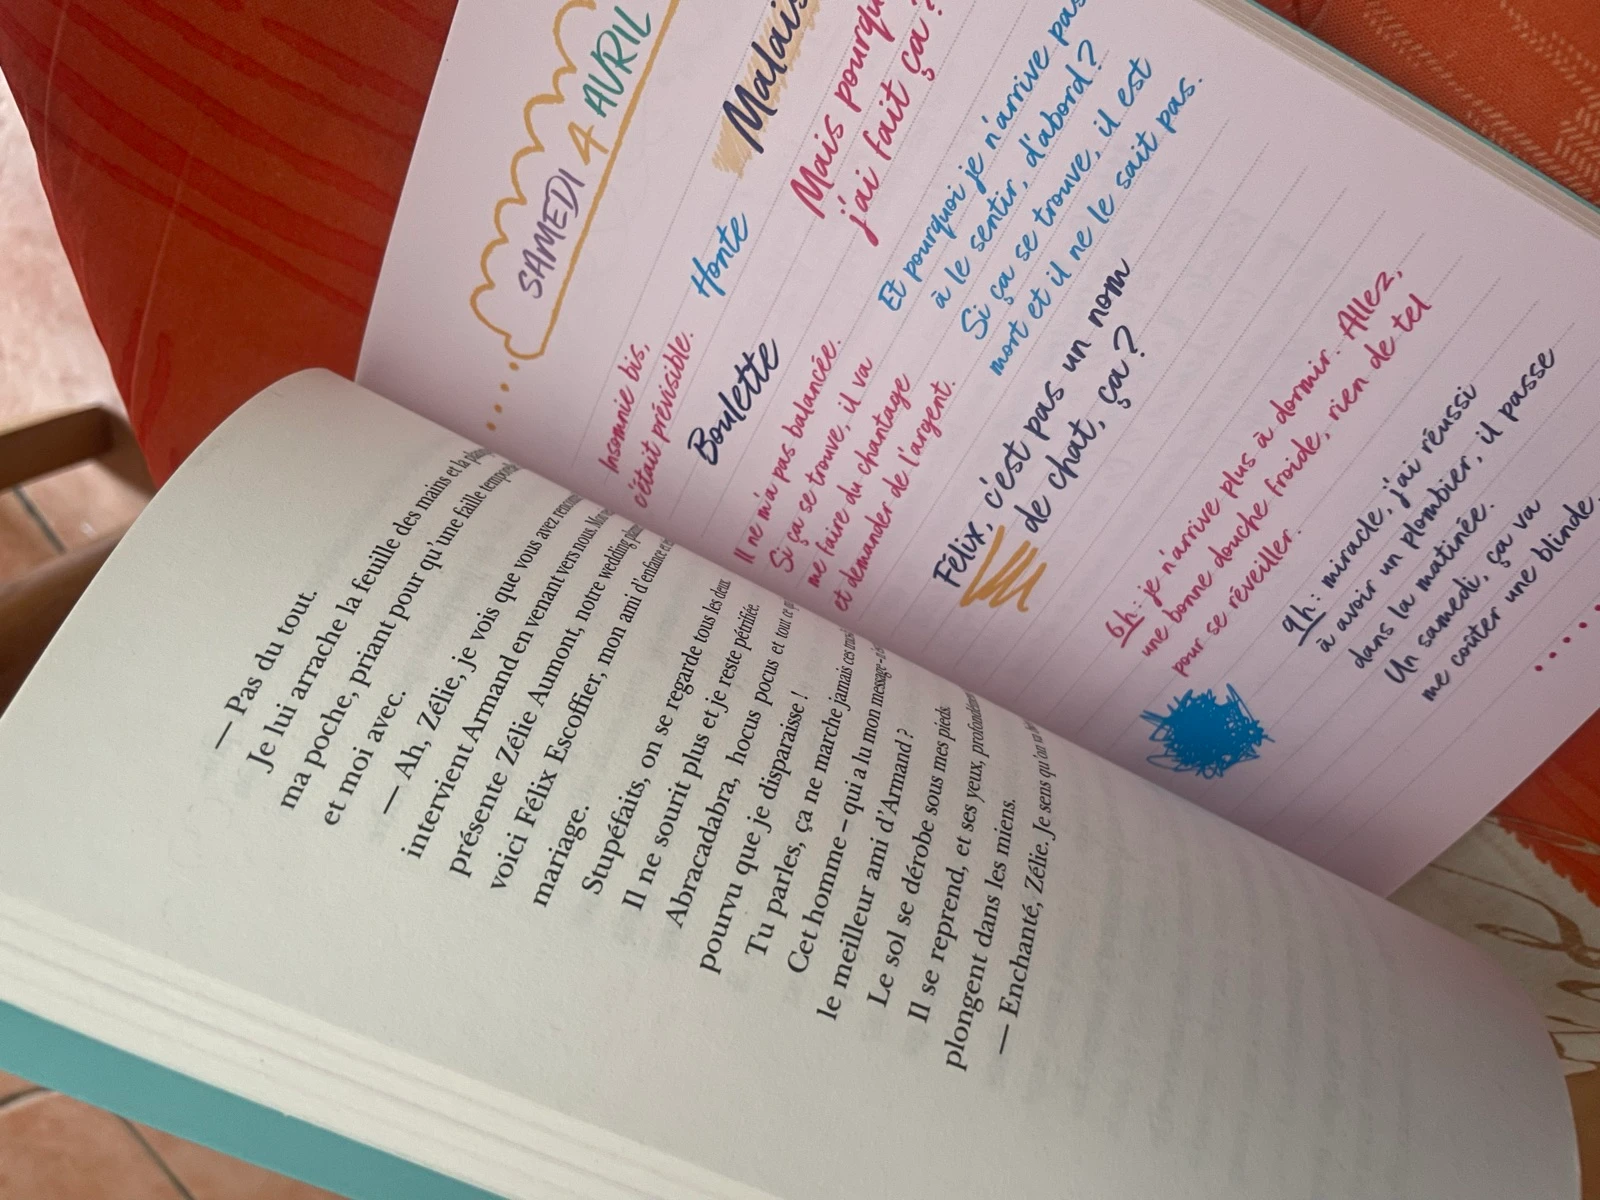 — Pas du tout.
Je lui arrache la feuille des mains et la
ma poche, priant pour qu'une faille
et moi avec.
— Ah, Zélie, je vois que vous avez
intervient Armand en venant vers nous.
présente Zélie Aumont, notre wedding
voici Félix Escoffier, mon ami d'enfance
mariage.
Stupéfaits, on se regarde tous les deux
Il ne sourit plus et je reste pétrifiée.
Abracadabra, hocus pocus et tout
pourvu que je disparaisse !
Tu parles, ça ne marche jamais ces
Cet homme – qui a lu mon
le meilleur ami d'Armand ?
Le sol se dérobe sous mes pieds.
Il se reprend, et ses yeux,
plongent dans les miens.
— Enchanté, Zélie. Je sens qu'on va
SAMEDI 4 AVRIL
Insomnie bis,
c'était prévisible.
Honte
Boulette
Mais
j'ai fait ça ?
Il ne m'a pas balancée.
Si ça se trouve, il va
me faire du chantage
et demander de l'argent.
Et pourquoi je n'arrive pas
à le sentir, d'abord ?
Si ça se trouve, il est
mort et il ne le sait pas.
Félix, c'est pas un nom
de chat, ça ?
6h : je n'arrive plus à dormir. Allez,
une bonne douche froide, rien de tel
pour se réveiller.
9h : miracle, j'ai réussi
à avoir un plombier, il passe
dans la matinée.
Un samedi, ça va
me coûter une blinde.